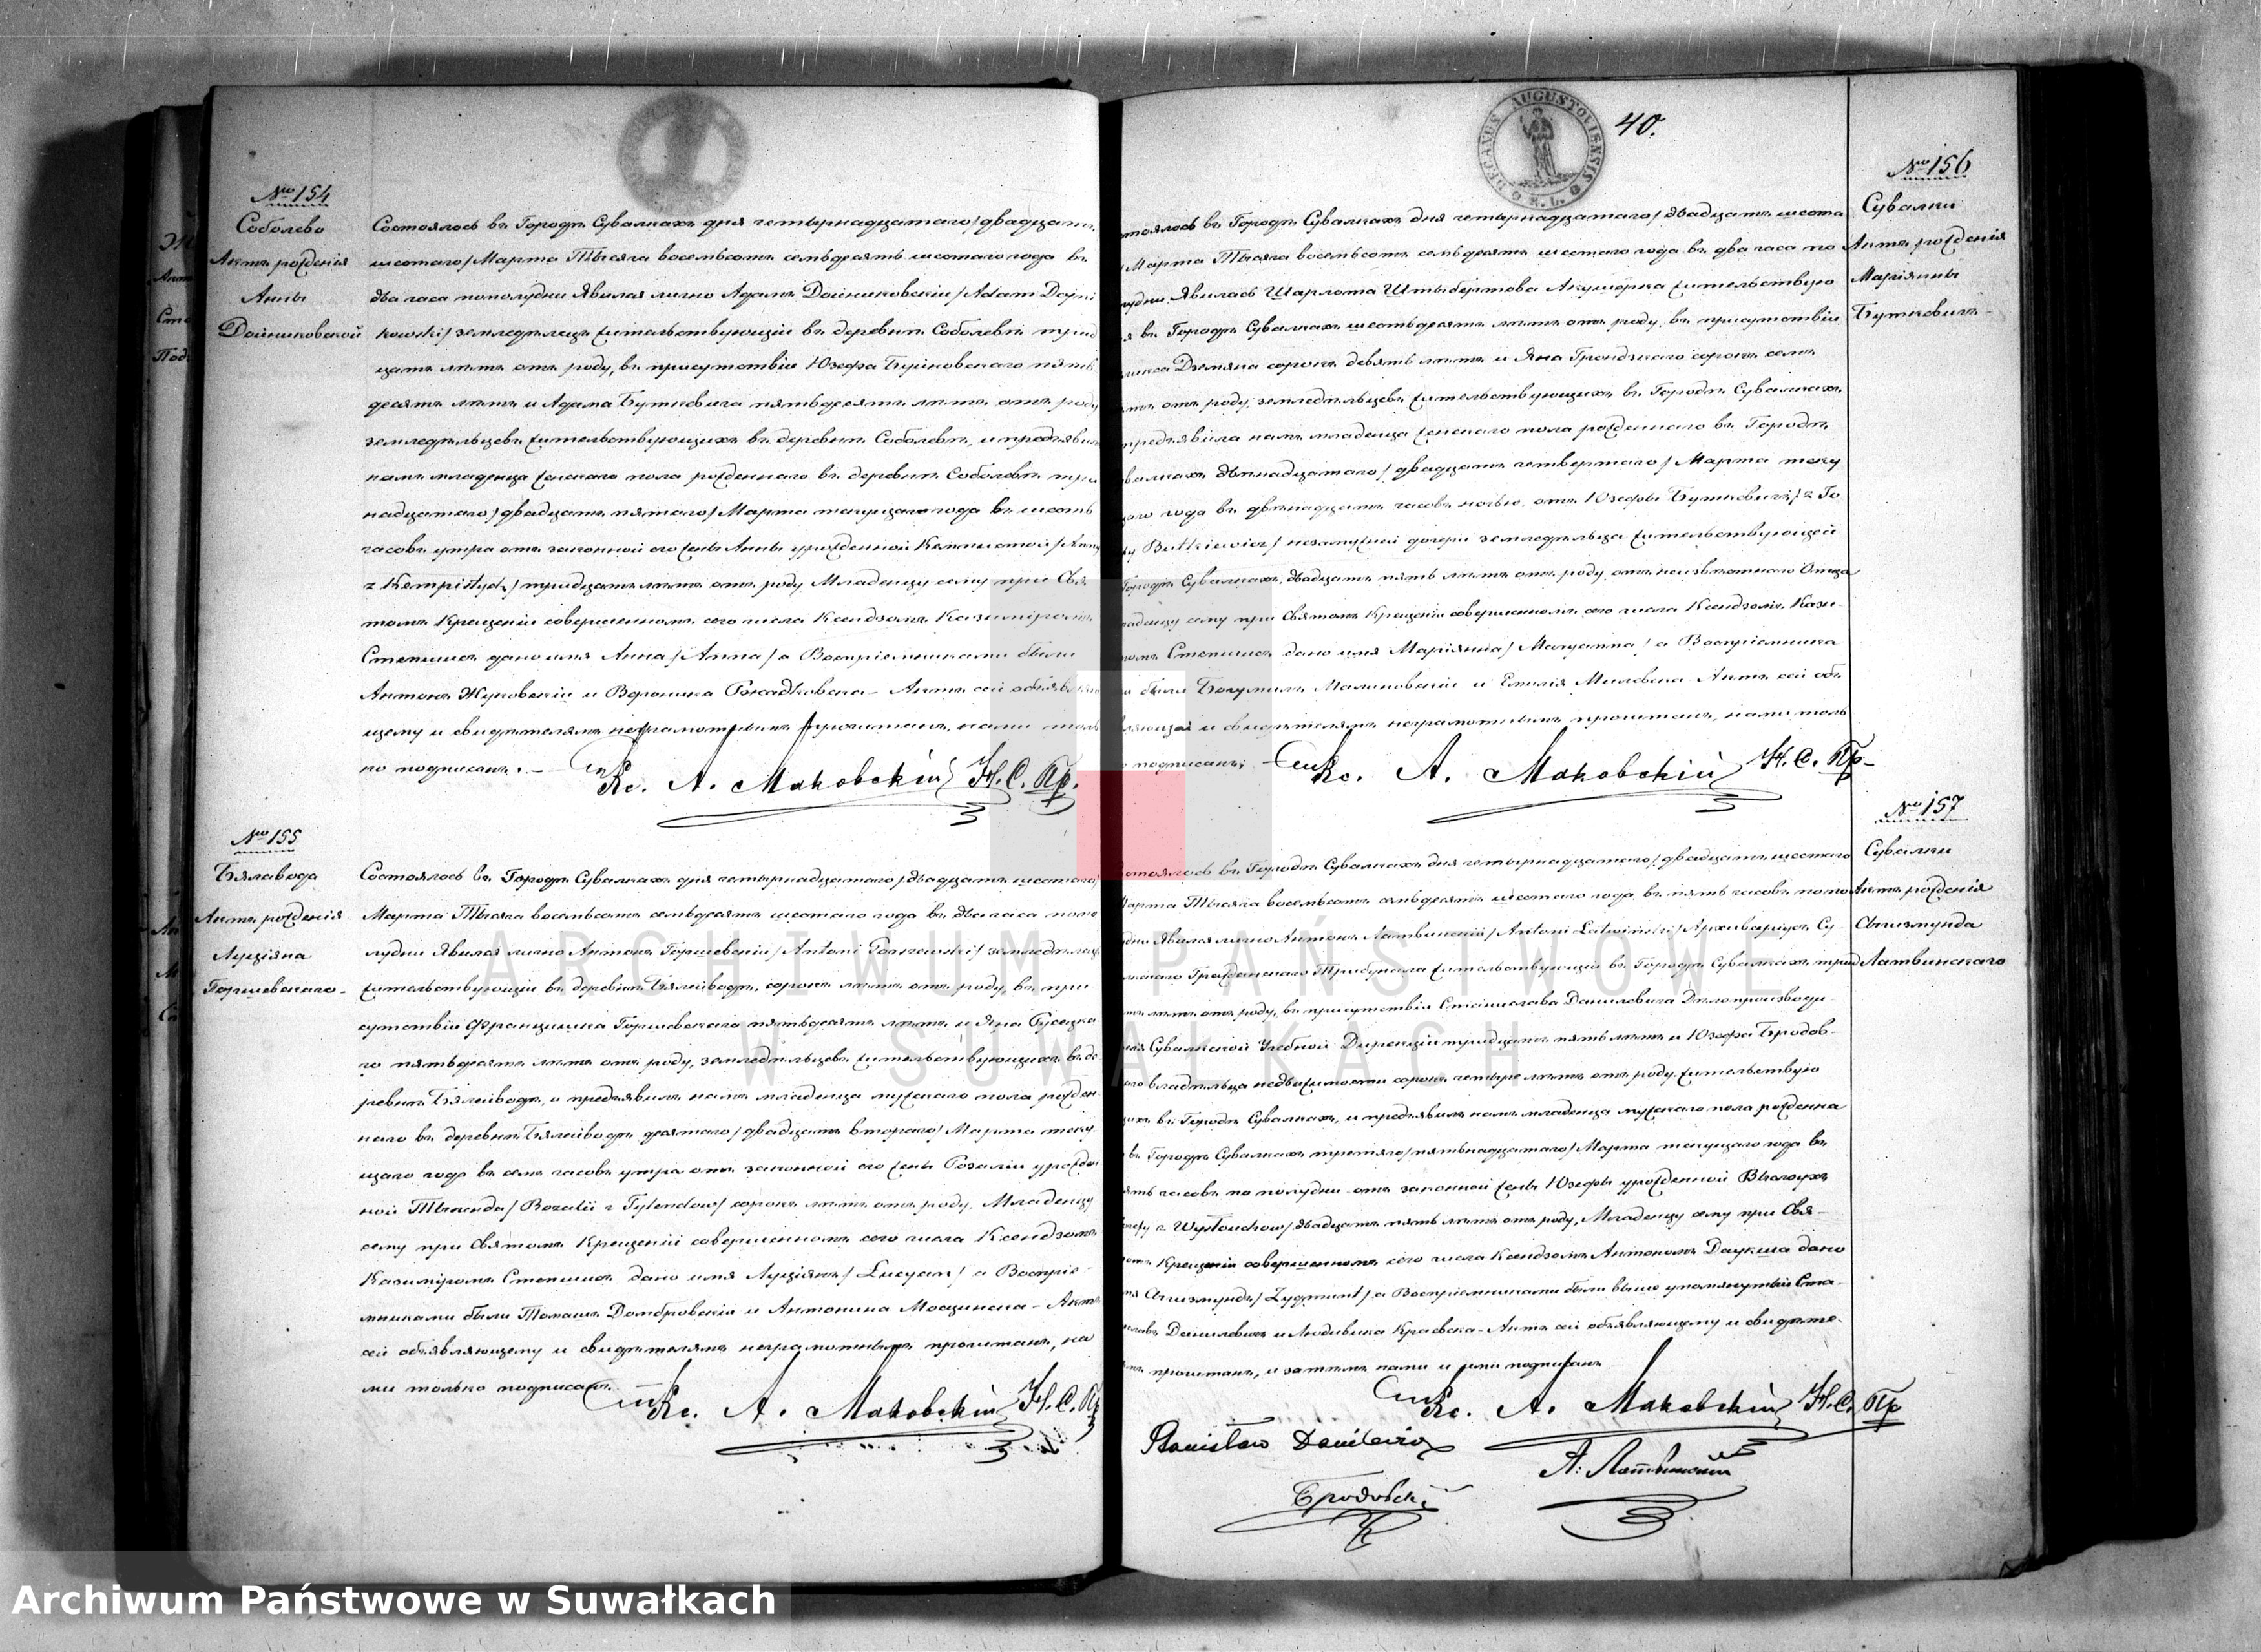 № 154
Соболево
Актъ рожденія
Анны
Дойниковской
Состоялось въ Городѣ Сувалкахъ дня четырнадцатаго /двадцать
шестаго/ Марта Тысяча восемьсотъ семьдесятъ шестаго года въ
два часа пополудни Явился лично Адамъ Дойниковскій /Adam Dojni
kowski/ земледѣлецъ жительствующій въ деревнѣ Соболевѣ трид
цать лѣтъ отъ роду, въ присутствіи Юзефа Буйновскаго пять
десятъ лѣтъ и Адама Буткевича пятьдесятъ лѣтъ отъ роду
земледѣльцевъ жительствующихъ въ деревнѣ Соболевѣ, и предъявилъ
намъ младенца женскаго пола рожденнаго въ деревнѣ Соболевѣ три
надцатаго /двадцать пятаго/ Марта текущаго года въ шесть
часовъ утра отъ законной его жены Анны урожденной /Anny
z / тридцать лѣтъ отъ роду. Младенцу сему при Свя
томъ Крещеніи совершенномъ сего числа Ксендзомъ Казиміромъ
дано имя Анна /Anna/ а Воспріемниками были
Антонъ Жуковскій и Вероника - Актъ сей объявляю
щему и свидѣтелямъ неграмотнымъ прочитанъ, нами толь
ко подписанъ. -
Кс. А. Маковскій Н. С. Пр.
№ 155
Бялавода
Актъ рожденія
Луціяна
Горчевскаго -
Состоялось въ Городѣ Сувалкахъ дня четырнадцатаго /двадцать шестаго/
Марта Тысяча восемьсотъ семьдесятъ шестаго года въ два часа попо
лудни Явился лично Антонъ /Antoni / земледѣлецъ
жительствующій въ деревнѣ Бялейводѣ, сорокъ лѣтъ отъ роду, въ при
сутствіи Францишка пятьдесятъ лѣтъ и Яна
го пятьдесятъ лѣтъ отъ роду, земледѣльцевъ жительствующихъ въ де
ревнѣ Бялейводѣ, и предъявилъ намъ младенца мужескаго пола рожден
наго въ деревнѣ Бялейводѣ десятаго /двадцать втораго/ Марта теку
щаго года въ семь часовъ утра отъ законной его жены Розаліи урожден
ной /Rozalii z / сорокъ лѣтъ отъ роду. Младенцу
сему при Святомъ Крещеніи совершенномъ сего числа Ксендзомъ
Казиміромъ дано имя Луціянъ /Lucyan/ а Воспріе
мниками были Томашъ Домбровскій и Антонина - Актъ
сей объявляющему и свидѣтелямъ неграмотнымъ прочитанъ, на
ми только подписанъ.
Кс. А. Маковскій Н. С. Пр
DECANUS AUGUSTOVIENSIS
40.
№ 156
Сувалки
Актъ рожденія
Маріянны
Буткевичъ -
стоялось въ Городѣ Сувалкахъ дня четырнадцатаго /двадцать шеста
Марта Тысяча восемьсотъ семьдесятъ шестаго года въ два часа по
лудни Явилась Шарлота Акушерка жительствую
я въ Городѣ Сувалкахъ шестьдесятъ лѣтъ отъ роду, въ присутствіи
сорокъ девять лѣтъ и Яна сорокъ семь
отъ роду, земледѣльцевъ жительствующихъ въ Городѣ Сувалкахъ
предъявила намъ младенца женскаго пола рожденнаго въ Городѣ
валкахъ двѣнадцатаго /двадцать четвертаго/ Марта теку
щаго года въ двѣнадцать часовъ ночью, отъ Юзефы Буткевичъ
Butkiewicz/ незамужней дочери земледѣльца жительствующей
Городѣ Сувалкахъ, двадцать пять лѣтъ отъ роду, отъ неизвѣстнаго Отца
младенцу сему при Святомъ Крещеніи совершенномъ сего числа Ксендзомъ Кази-
ромъ дано имя Маріянна /Maryanna/ а Воспріемника
и были Богумилъ Малиновскій и Емилія Милевска - Актъ сей объ
являющей и свидѣтелямъ неграмотнымъ прочитанъ, нами толь
подписанъ. -
Кс. А. Маковскій Н. С. Пр -
№ 157
Сувалки
Актъ рожденія
Сигизмунда
Латвинскаго
стоялось въ Городѣ Сувалкахъ дня четырнадцатаго /двадцать шестаго
Марта Тысяча восемьсотъ семьдесятъ шестаго года, въ пять часовъ попо
лудни Явился лично Антонъ Латвинскій /Antoni Łatwiński/ Архиваріусъ Су
валкскаго Гражданскаго Трибунала жительствующій въ Городѣ Сувалкахъ трид
лѣтъ отъ роду, въ присутствіи Станислава Данилевича Дѣлопроизводи-
Сувалкской Учебной Дирекціи тридцать пять лѣтъ и Юзефа Бродов-
владѣльца недвижимости сорокъ четыре лѣтъ отъ роду жительствую
щихъ въ Городѣ Сувалкахъ, и предъявилъ намъ младенца мужескаго пола рожденна
въ Городѣ Сувалкахъ третяго /пятьнадцатаго/ Марта текущаго года въ
пять часовъ по полудни отъ законной жены Юзефы урожденной
двадцать пять лѣтъ отъ роду, Младенцу сему при Свя-
томъ Крещеніи совершенномъ сего числа Ксендзомъ Антономъ дано
имя Сигизмундъ /Zygmunt/ а Воспріемниками были выше упомянутый Ста-
Данилевичъ и Людвика Краевска - Актъ сей объявляющему и свидѣте-
прочитанъ, и затемъ нами и ими подписанъ
Кс. А. Маковскій Н. С. Пр
Stanisław Danilewicz
А. Латвинскій
Бродовскій
ARCHIWUM PAŃSTWOWE
W SUWAŁKACH
Archiwum Państwowe w Suwałkach